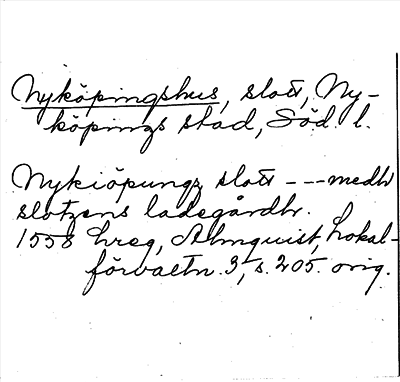 Nyköpingshus, slott, Ny-
köpings stad, Söd. l.
Nykiöpungz slott - - - medh
slotzens ladegårdh.
1558 hreg, Almquist, Lokal-
förvaltn. 3, s. 205. orig.